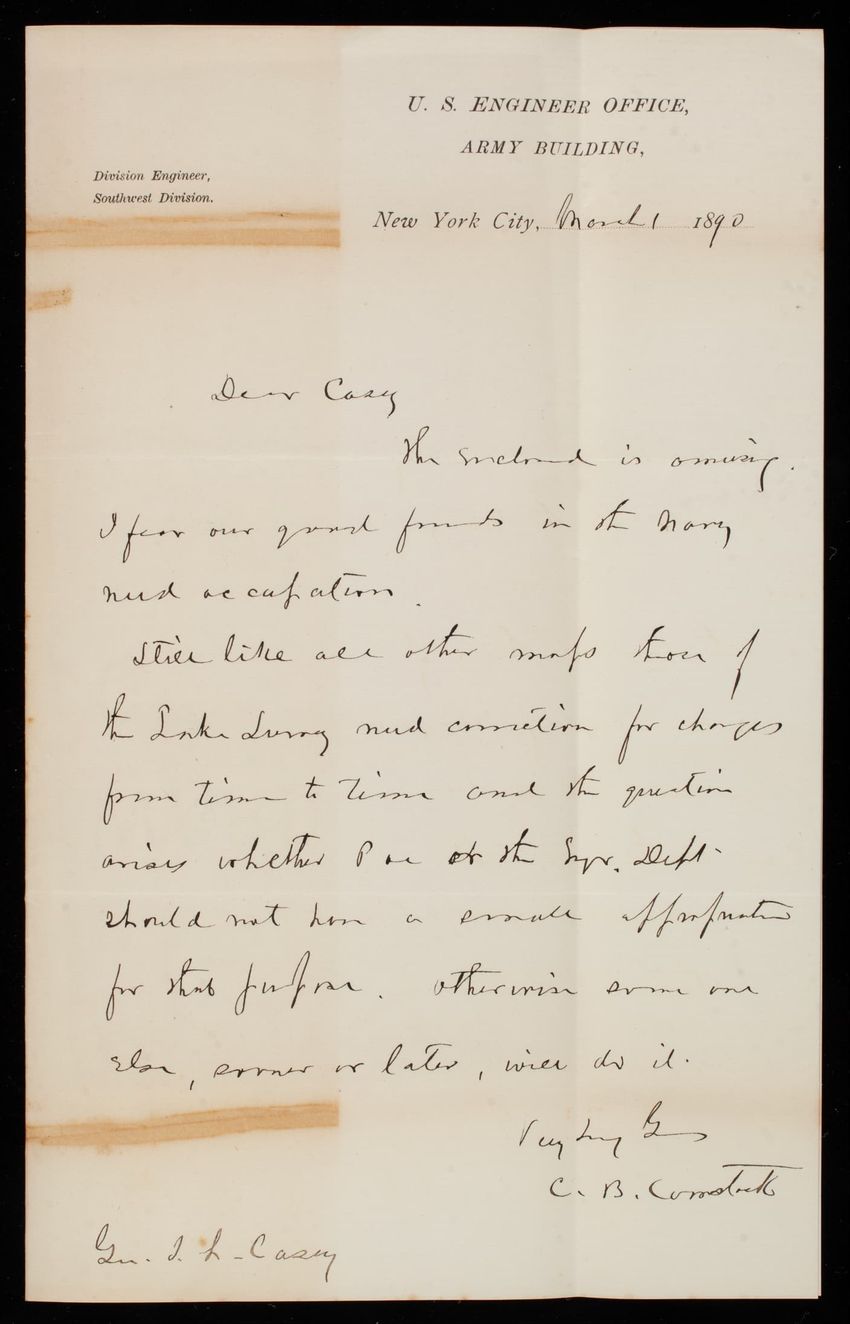 U. S. ENGINEER OFFICE,
ARMY BUILDING,
Division Engineer,
Southwest Division.
New York City, March 1 1890
Dear Casey
The enclosed is amusing.
I fear our good friends in the Navy
need occupation.
Still like all other maps those of
the Lake Survey need correction for changes
from time to time and the question
arises whether Poe or the Engr. Dept
should not have a small appropriation
for that purpose. Otherwise some one
else, sooner or later, will do it.
Very truly Yours
C. B. Comstock
Gen. T. L. Casey